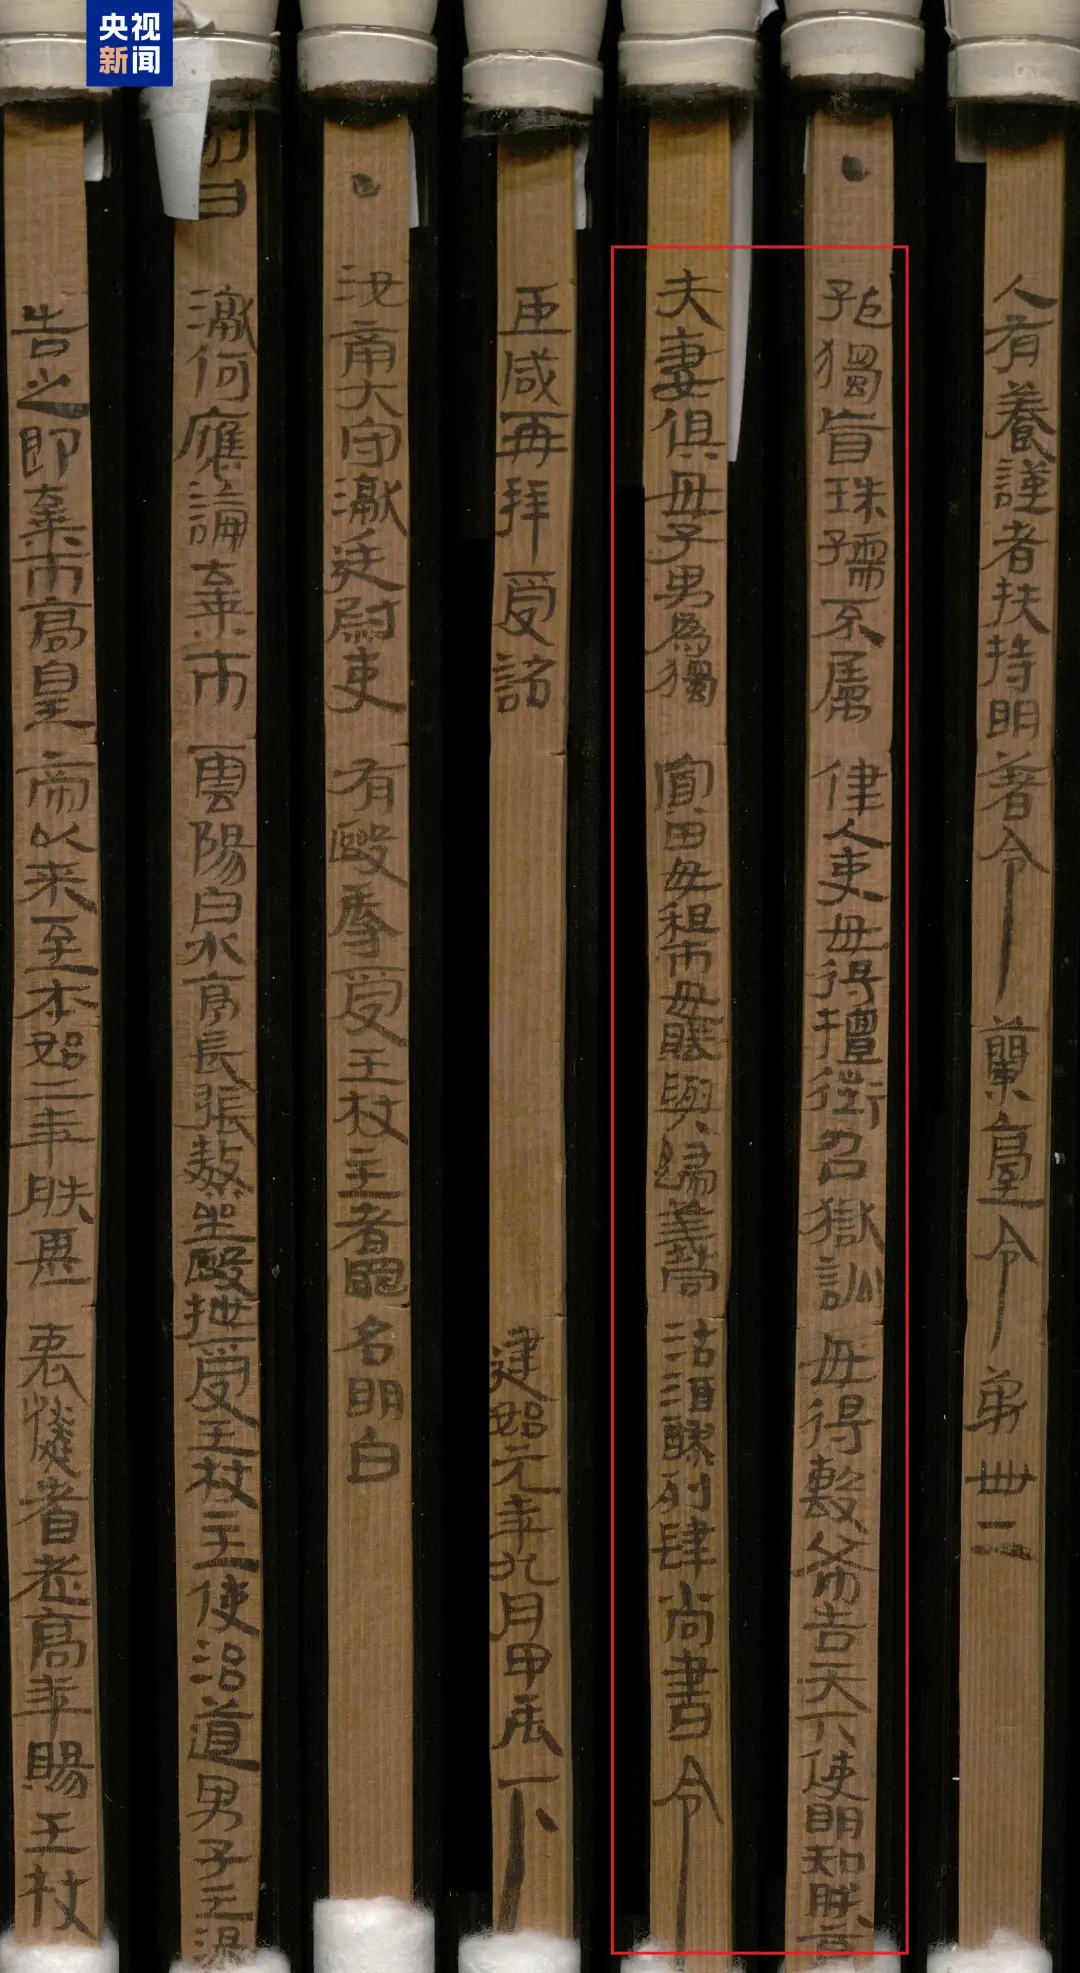 央视
新闻
人有養謹者扶持明著令 蘭臺令第卌二
·孤獨盲珠孺不屬律人吏毋得擅徵召獄訟毋得毄布告天下使明知朕意
夫妻俱毋子男為獨寡田毋租市毋賦與歸義同沽酒醪列肆尚書令
臣咸再拜受詔 建始元年九月甲辰下
·汝南大守讞廷尉吏有毆辱受王杖主者罪名明白
制曰讞何應論棄市雲陽白水亭長張熬坐毆抴受王杖主使治道男子王湯
告之即棄市高皇帝以來至本始二年朕甚哀憐耆老高年賜王杖